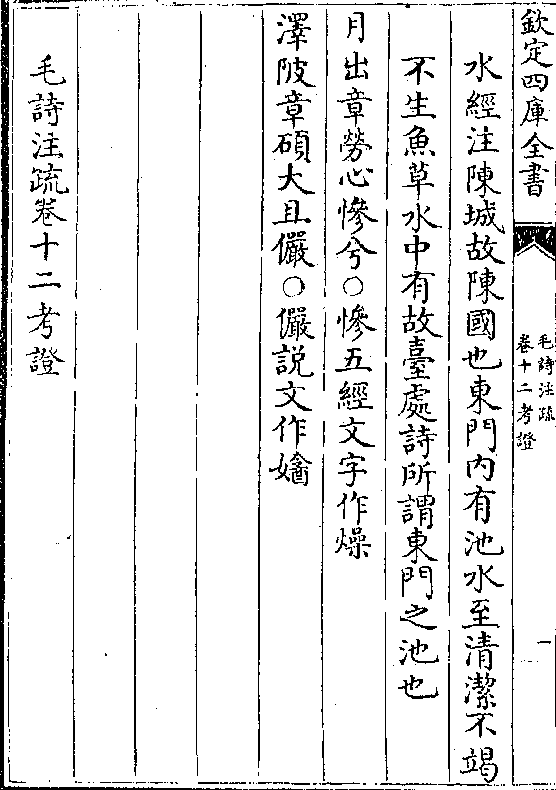 欽定四庫全書
毛詩注疏
卷十二考證
一
水經注陳城故陳國也東門內有池水至清潔不竭
不生魚草水中有故臺處詩所謂東門之池也
月出章勞心慘兮○慘五經文字作懆
澤陂章碩大且儼○儼說文作㜝
毛詩注疏卷十二考證